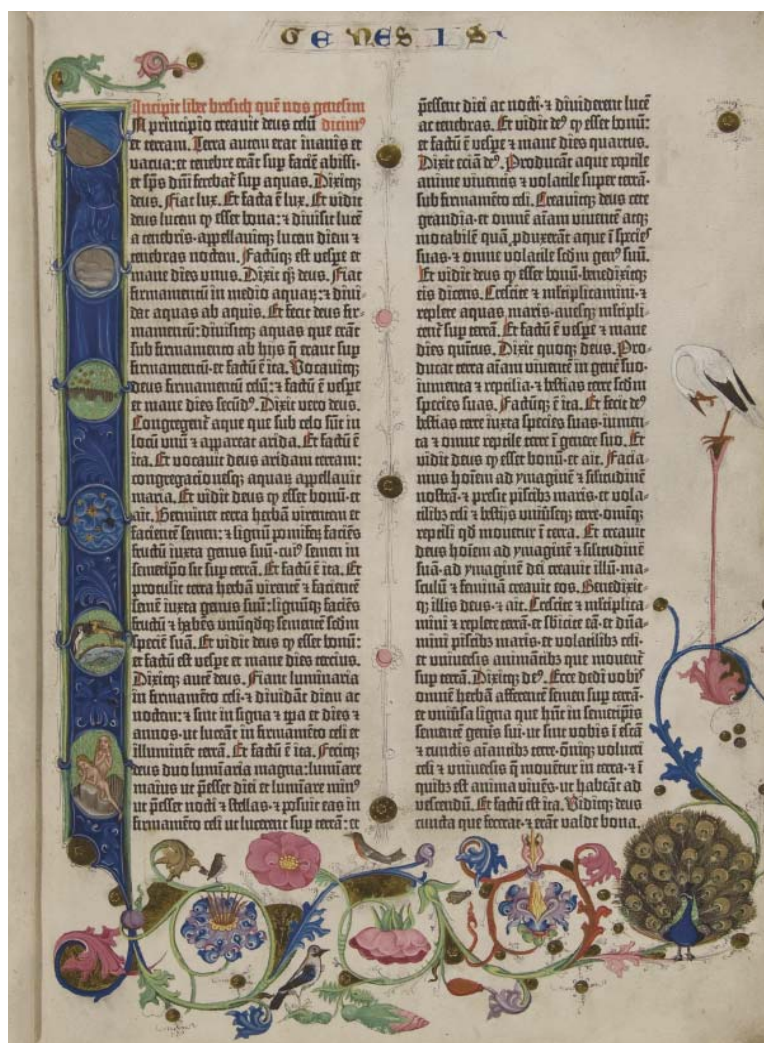 GENESIS
Incipit liber bresich quē nos genesim
IN principio creavit deus celū dicim⁹
et terram. Terra autem erat inanis et
vacua: et tenebre erāt sup faciē abissi:
et sp̄s dn̄i ferebat̄ sup aquas. Dixitqꝫ
deus. Fiat lux. Et facta ē lux. Et vidit
deus lucem ꝙ esset bona: ⁊ divisit lucē
a tenebris · appellavitqꝫ lucem diem ⁊
tenebras noctem. Factūqꝫ est vespe et
mane dies unus. Dixit qꝫ deus. Fiat
firmamentū in medio aquaꝝ: ⁊ divi-
dat aquas ab aquis. Et fecit deus fir-
mamentū: divisitqꝫ aquas que erāt
sub firmamento ab hijs q̄ erant sup
firmamentū · et factū ē ita. Vocavitqꝫ
deus firmamentū celū: ⁊ factū ē vespe
et mane dies secūd⁹. Dixit vero deus.
Congregent̄ aque que sub celo sūt in
locū unū ⁊ appareat arida. Et factū ē
ita. Et vocavit deus aridam terram:
congregacionesqꝫ aquaꝝ appellavit
maria. Et vidit deus ꝙ esset bonū · et
ait. Germinet terra herbā virentem et
facientē semen: et lignū pomifeꝝ faciēs
fructū iuxta genus suū · cui⁹ semen in
semetip̄o sit sup terrā. Et factū ē ita. Et
protulit terra herbā virentē ⁊ facientē
semē iuxta genus suū: lignūqꝫ faciēs
fructū ⁊ habēs unūqdqꝫ sementē scd̄m
speciē suā. Et vidit deus ꝙ esset bonū:
et factū est vespe et mane dies tercius.
Dixitqꝫ autē deus. Fiant luminaria
in firmamēto celi · ⁊ dividāt diem ac
noctem: ⁊ sint in signa ⁊ tp̄a et dies ⁊
annos · ut luceāt in firmamēto celi et
illuminēt terrā. Et factū ē ita. Fecitqꝫ
deus duo lumīaria magna: lumīare
maius ut p̄esset diei et lumīare min⁹
ut p̄esset nocti ⁊ stellas · ⁊ posuit eas in
firmamēto celi ut lucerent sup terrā: et
p̄essent diei ac nocti · ⁊ dividerent lucē
ac tenebras. Et vidit de⁹ ꝙ esset bonū:
et factū ē vespe ⁊ mane dies quartus.
Dixit eciā de⁹. Producāt aque reptile
anime viventis ⁊ volatile super terrā ·
sub firmamēto celi. Creavitqꝫ deus cete
grandia · et omnē aīam viventē atqꝫ
motabilē quā ꝓduxerāt aque ī species
suas · ⁊ omne volatile scd̄m gen⁹ suū.
Et vidit deus ꝙ esset bonū · benedixitqꝫ
eis dicens. Crescite ⁊ mltiplicamini · ⁊
replete aquas maris · avesqꝫ mltipli-
cent̄ sup terrā. Et factū ē vespe ⁊ mane
dies quītus. Dixit quoqꝫ deus. Pro-
ducat terra aīam viventē in genē suo ·
iumenta ⁊ reptilia · ⁊ bestias terre scd̄m
species suas. Factūqꝫ ē ita. Et fecit de⁹
bestias terre iuxta species suas · iumen-
ta ⁊ omne reptile terre ī genere suo. Et
vidit deus ꝙ esset bonū · et ait. Facia-
mus hoīem ad ymaginē ⁊ sīlitudinē
nostrā · ⁊ presit piscibꝫ maris · et vola-
tilibꝫ celi ⁊ bestijs univ̄seqꝫ terre · omīqꝫ
reptili qd̄ movetur ī terra. Et creavit
deus hoīem ad ymaginē ⁊ sīlitudinē
suā · ad ymaginē dei creavit illū · ma-
sculū ⁊ feminā creavit eos. Benedixit-
qꝫ illis deus · ⁊ ait. Crescite ⁊ mltiplica-
mini ⁊ replete terrā · et sbicite eā · et dn̄a-
mini piscibꝫ maris · et volatilibꝫ celi ·
et universis animātibꝫ que movent̄
sup terrā. Dixitqꝫ de⁹. Ecce dedi vobis
omnē herbā afferentē semen sup terrā ·
et univ̄sa ligna que hn̄t in semetip̄is
sementē genis sui · ut sint vobis ī escā
⁊ cunctis aīantibꝫ terre · om̄iqꝫ volucri
celi ⁊ universis q̄ movent̄ in terra · ⁊ ī
quibꝫ est anima vivēs · ut habeāt ad
vescendū. Et factū est ita. Viditqꝫ deus
cuncta que fecerat · ⁊ erāt valde bona.